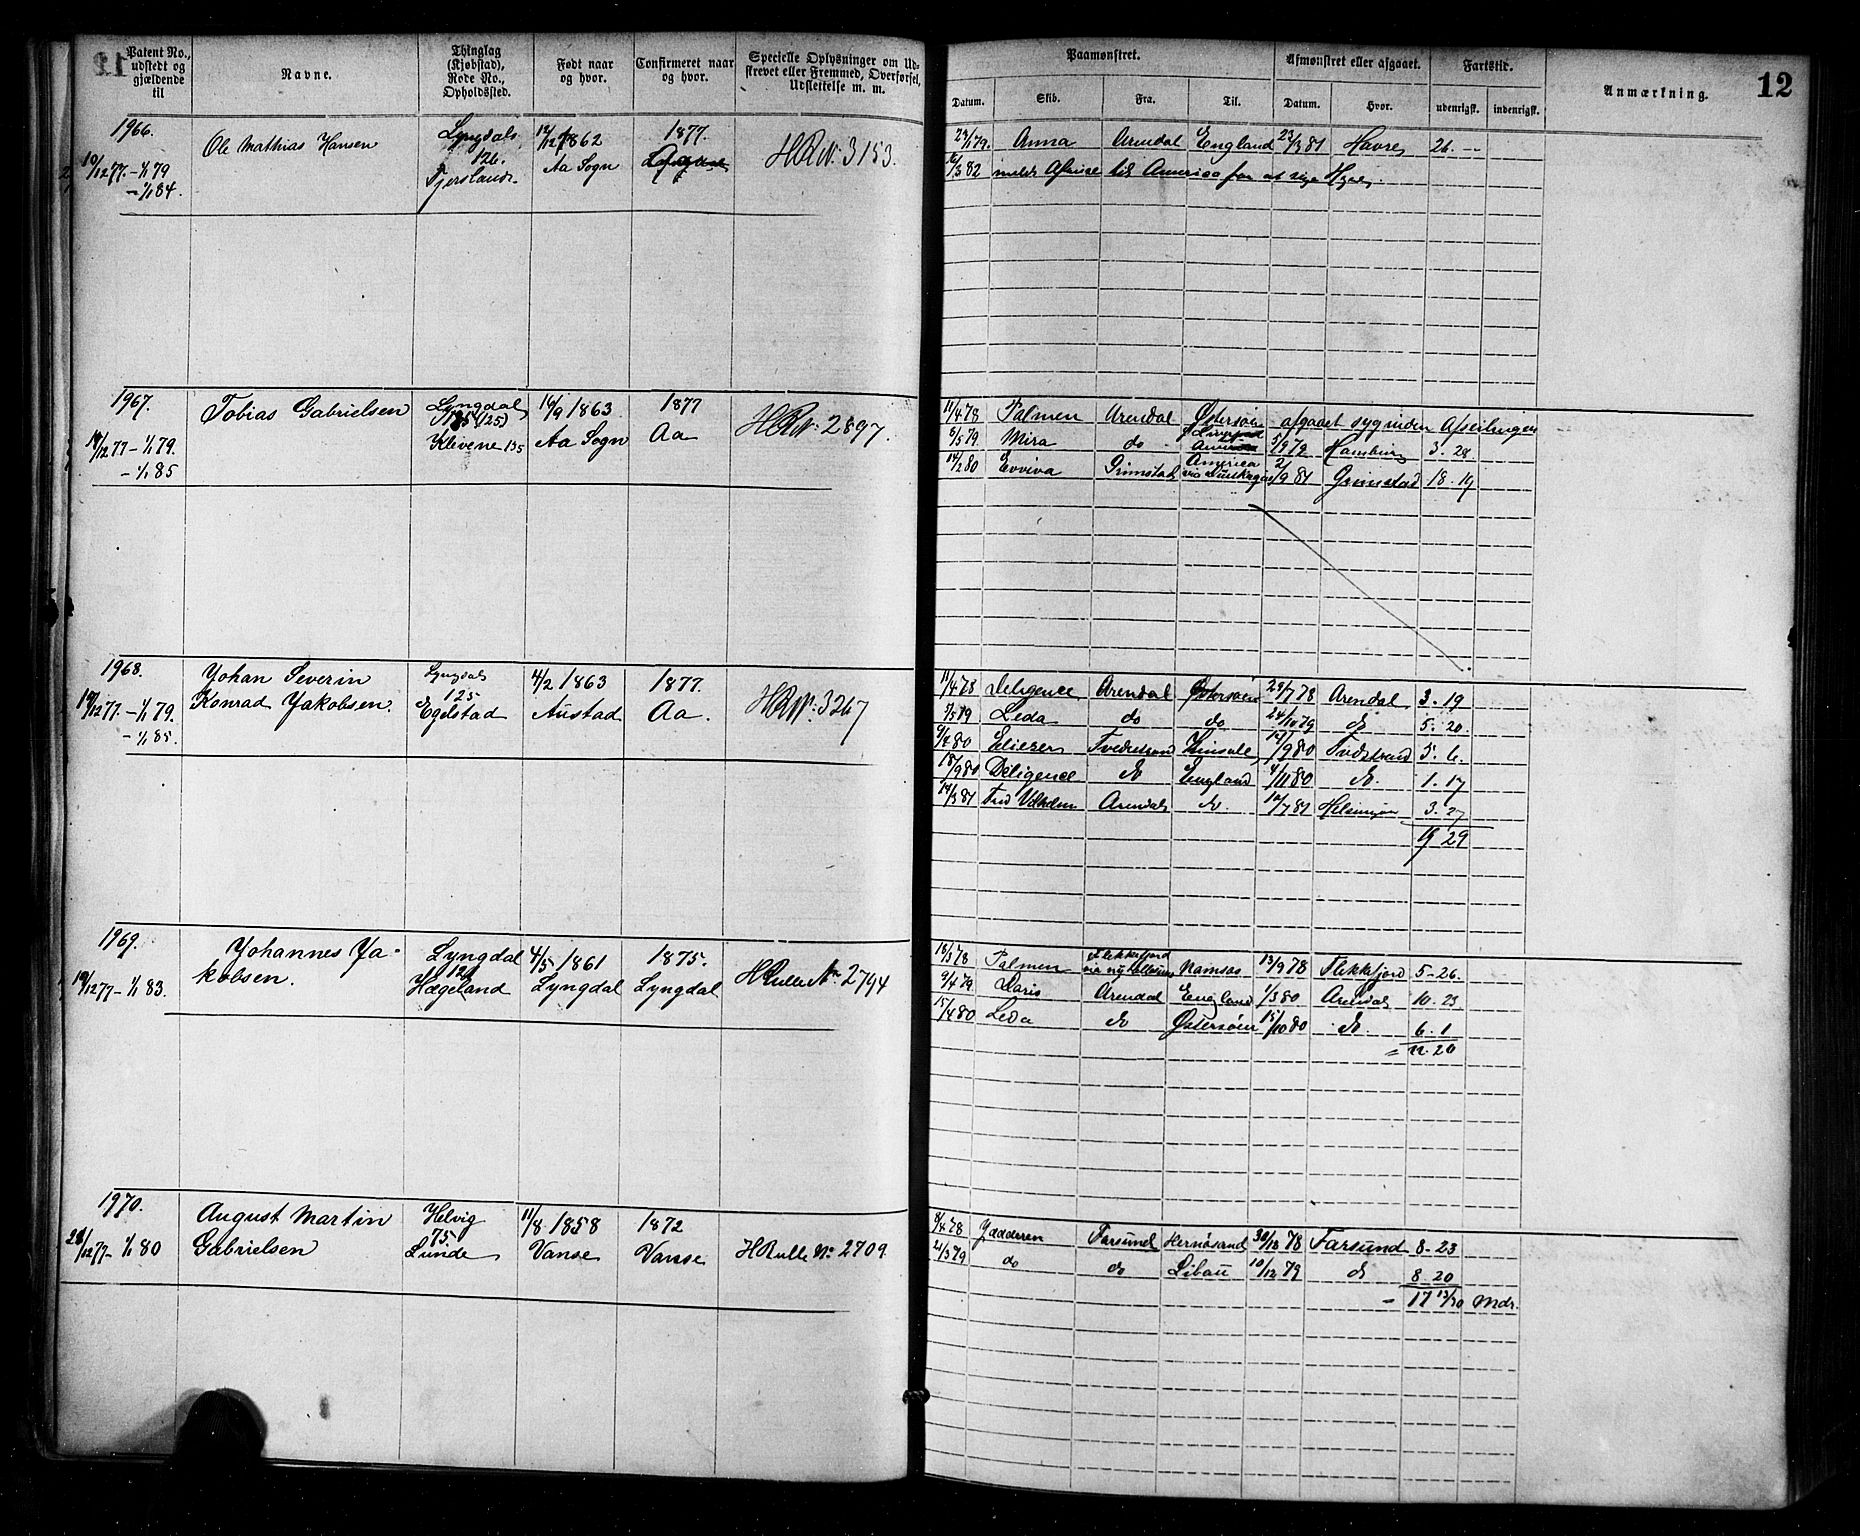 Patent No., udstedt og gjældende til
Navne.
Thinglag (Kjøbstad), Rode No., Opholdssted.
Født naar og hvor.
Confirmeret naar og hvor.
Specielle Oplysninger om Udskrevet eller Fremmed, Overførsel, Udslettelse m. m.
Paamønstret.
Afmønstret eller afgaaet.
Fartstid.
Anmærkning.
12
Datum.
Skib.
Fra.
Til.
Datum.
Hvor.
udenrigsk.
indenrigsk.
1966.
10/12 77. - 1/1 79
- 1/1 84.
Ole Mathias Hansen
Lyngdals
126.
Fjersland
1862
Aa Sogn
1877.
HR No. 3153.
Anna Arendal England 23/3 81 Havre 26. --
til America for at søge Hyre.
1967.
19/12 77 - 1/1 79.
- 1/1 85
Tobias Gabrielsen
Lyngdal
(125)
Klivene 135
16/9 1863.
Aa Sogn
1877
Aa
HR No. 2897.
11/4 78 Palmen Arendal Østersøen - afgaaet syg inden Afseilingen
8/5 79. Mira do Hamburg 3. 28
14/2 80 Evviva Grimstad America 2/9 81 Grimstad 18. 19
1968.
19/12 77. - 1/1 79.
- 1/1 85.
Johan Severin
Konrad Jakobsen.
Lyngdals
125
Egelstad
4/2 1863
Austad
1877.
Aa.
HR No. 3267
11/4 78 Deligence Arendal Østersøen 29/7 78 Arendal 3. 19
7/5 79 Leda do do 24/10 79 do 5. 20.
9/4 80 Eliezer Tvedestrand Kinsale 12/9 80 Tvdstrand 5. 6.
18/9 80 Deligence do England 4/11 80 do. 1. 17
14/3 81 Fred Vilhelm Arendals do. 10/7 81 Helsingør 3. 27
19 29
1969.
19/12 77 - 1/1 83.
Johannes Ja-
kobsen.
Lyngdal
121
Hægeland
4/5 1861
Lyngdal
1875.
Lyngdal
HRulle No. 2794
18/3 78 Palmen Flekkefjord Namsos 13/9 78 Flekkefjord 5 - 26.
9/4 79. Daris Arendal England 1/3 80 Arendals 10. 23
15/4 80 Leda do Østersøen 15/10 80 do. 6. 1
= 22. 20
1970.
28/12 77 - 1/1 80
August Martin
Gabrielsen
Helvig
75.
Lunde
11/8 1858
Vanse
1872
Vanse
HRulle No. 2709
8/4 78 Jædderen Farsund Hernøsand 30/12 78 Farsund 8 - 23
21/3 79 do do Libau 10/12 79 do 8. 20
= 17 13/30 Mdr.